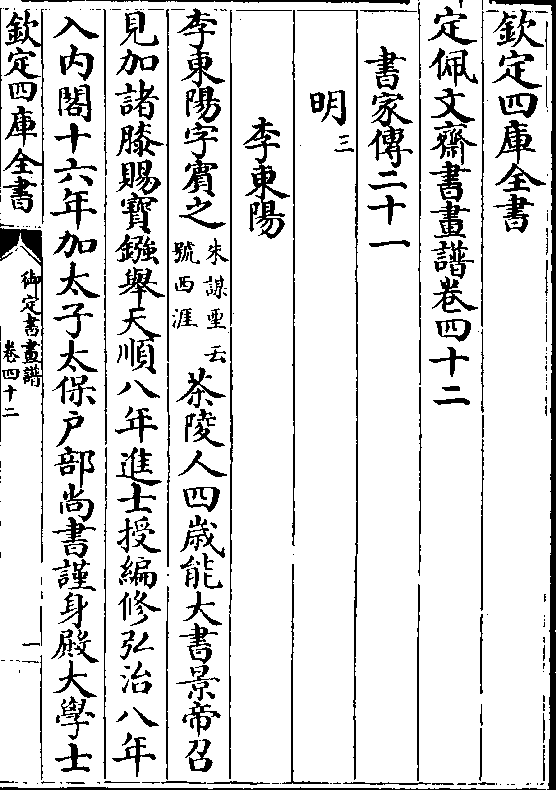 欽定四庫全書
定佩文齋書畫譜卷四十二
書家傳二十一
明三
李東陽
李東陽字賓之朱謀垔云號西涯茶陵人四歲能大書景帝召
見加諸膝賜寶鏹舉天順八年進士授編修弘治八年
入内閣十六年加太子太保户部尚書謹身殿大學士
欽定四庫全書
御定書畫譜
卷四十二
一